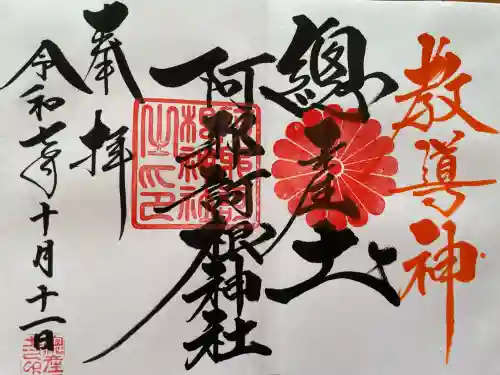 教導神
總産土
阿邪訶根神社
奉拝
令和七年十月十一日